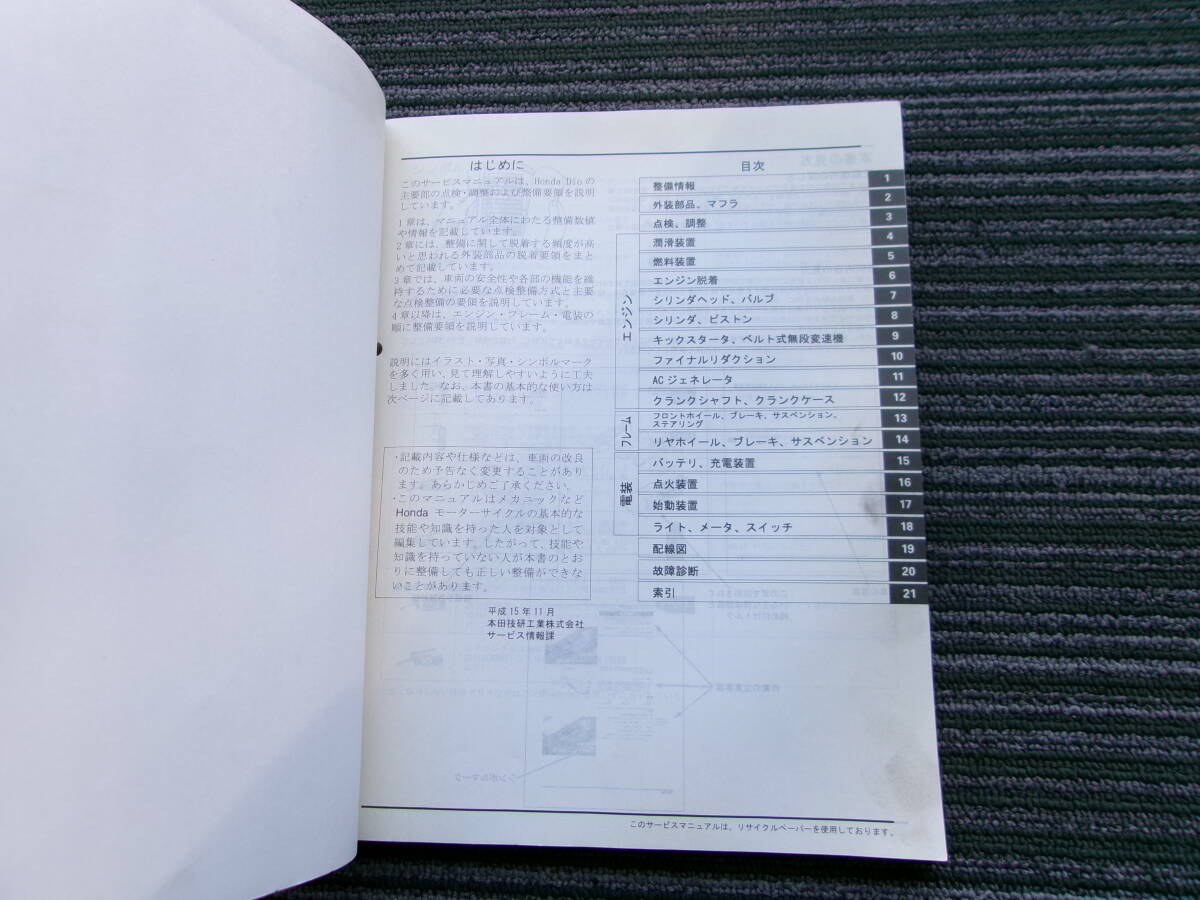 はじめに
このサービスマニュアルは、Honda Dio の
主要部の点検・調整および整備要領を説明
しています。
1 章は、マニュアル全体にわたる整備数値
や情報を記載しています。
2 章には、整備に関して脱着する頻度が高
いと思われる外装部品の脱着要領をまと
めて記載しています。
3 章では、車両の安全性や各部の機能を維
持するために必要な点検整備方式と主要
な点検整備の要領を説明しています。
4 章以降は、エンジン・フレーム・電装の
順に整備要領を説明しています。
説明にはイラスト・写真・シンボルマーク
を多く用い、見て理解しやすいように工夫
しました。なお、本書の基本的な使い方は
次ページに記載してあります。
・記載内容や仕様などは、車両の改良
のため予告なく変更することがあり
ます。あらかじめご了承ください。
・このマニュアルはメカニックなど
Honda モーターサイクルの基本的な
技能や知識を持った人を対象として
編集しています。したがって、技能や
知識を持っていない人が本書のとお
りに整備しても正しい整備ができな
いことがあります。
平成 15 年 11 月
本田技研工業株式会社
サービス情報課
目次
整備情報 1
外装部品、マフラ 2
点検、調整 3
エンジン
潤滑装置 4
燃料装置 5
エンジン脱着 6
シリンダヘッド、バルブ 7
シリンダ、ピストン 8
キックスタータ、ベルト式無段変速機 9
ファイナルリダクション 10
AC ジェネレータ 11
クランクシャフト、クランクケース 12
フレーム
フロントホイール、ブレーキ、サスペンション、
ステアリング 13
リヤホイール、ブレーキ、サスペンション 14
電装
バッテリ、充電装置 15
点火装置 16
始動装置 17
ライト、メータ、スイッチ 18
配線図 19
故障診断 20
索引 21
このサービスマニュアルは、リサイクルペーパーを使用しております。